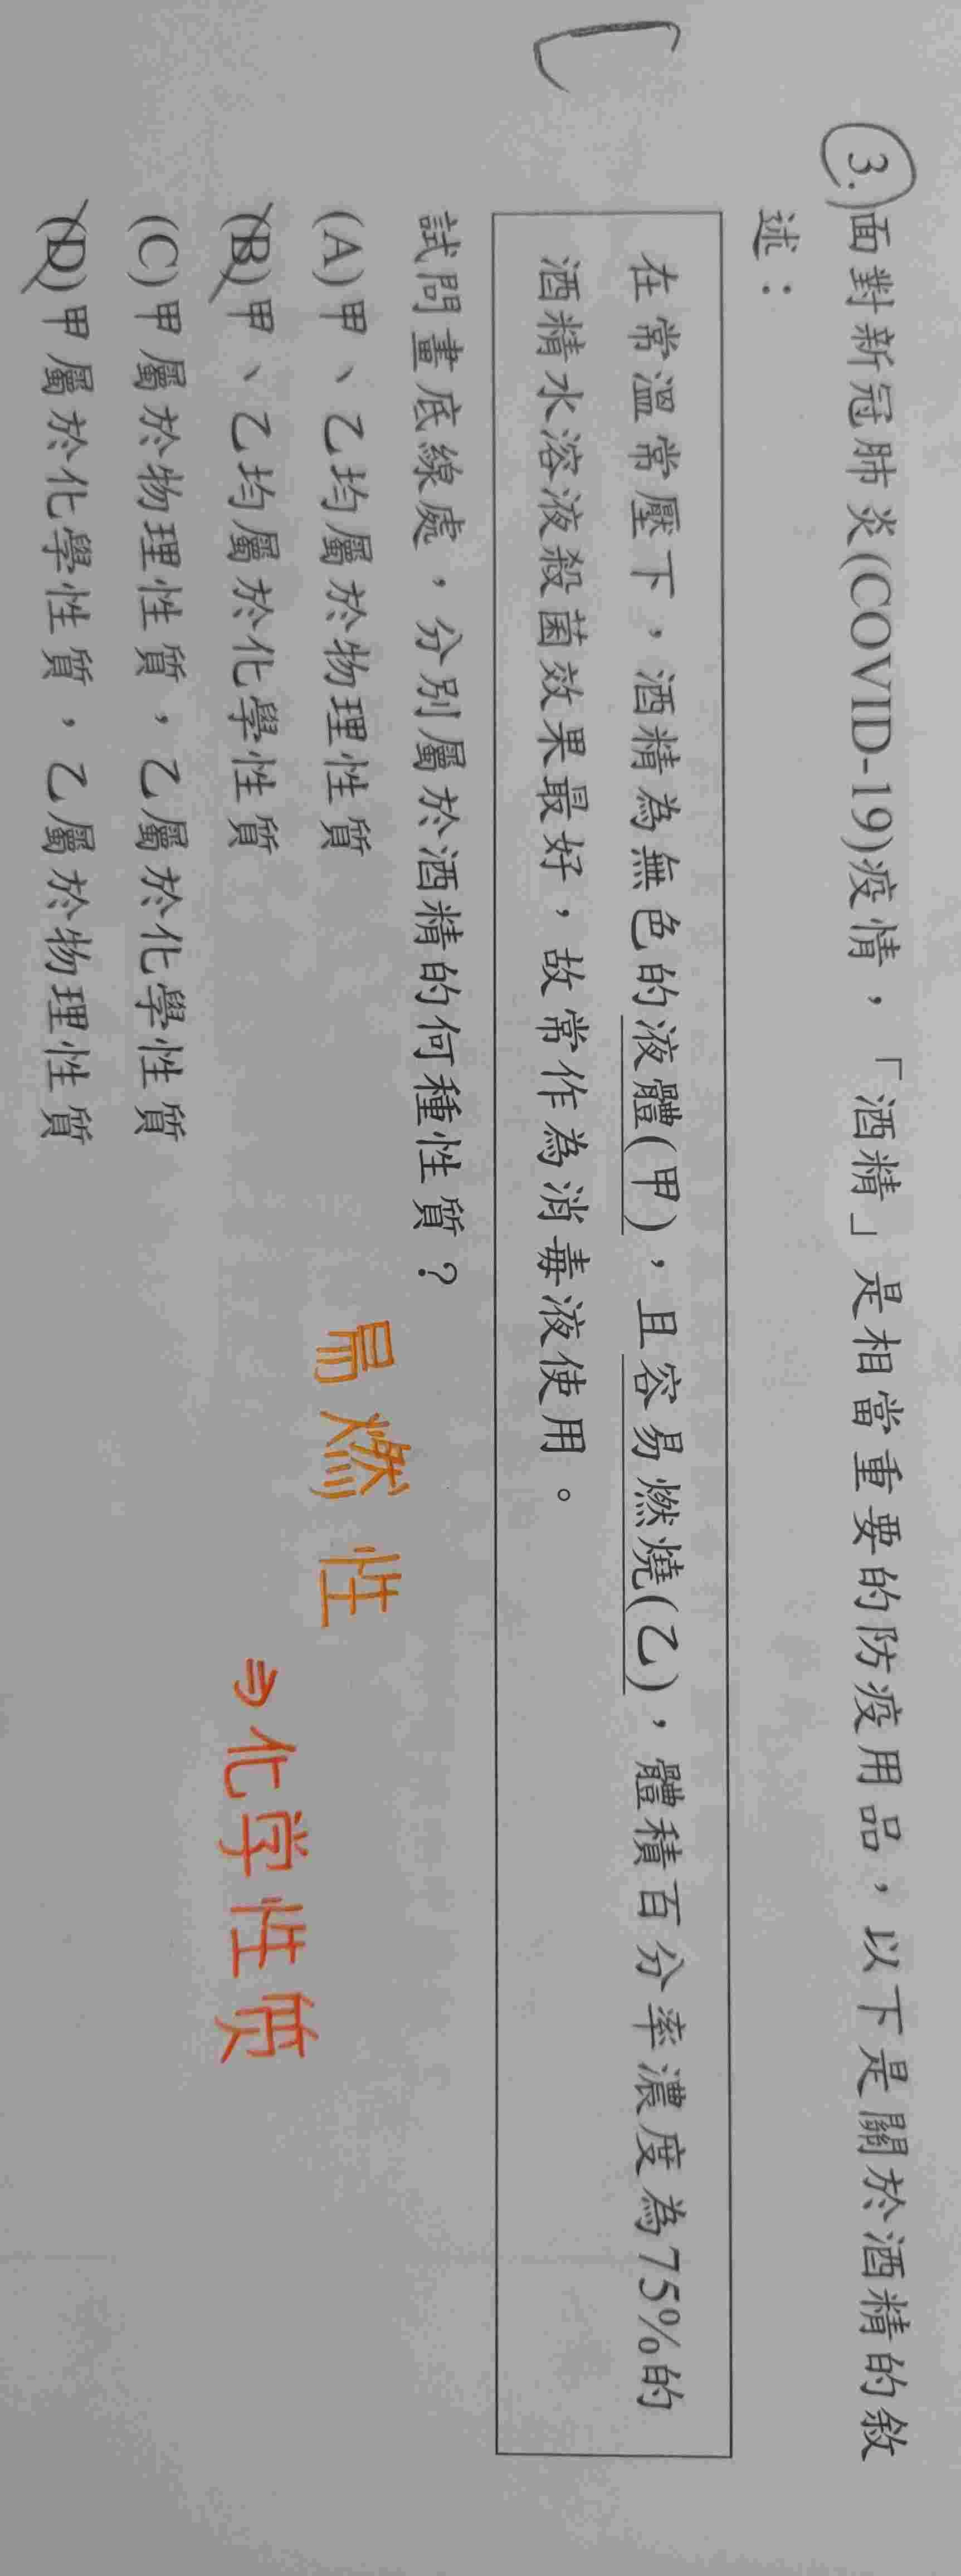 3.面對新冠肺炎(COVID-19)疫情，「酒精」是相當重要的防疫用品，以下是關於酒精的敘
述：
在常溫常壓下，酒精為無色的液體(甲)，且容易燃燒(乙)，體積百分率濃度為75%的
酒精水溶液殺菌效果最好，故常作為消毒液使用。
試問畫底線處，分別屬於酒精的何種性質？
(A)甲、乙均屬於物理性質
(B)甲、乙均屬於化學性質
(C)甲屬於物理性質，乙屬於化學性質
(D)甲屬於化學性質，乙屬於物理性質
易燃性
⇒化学性质